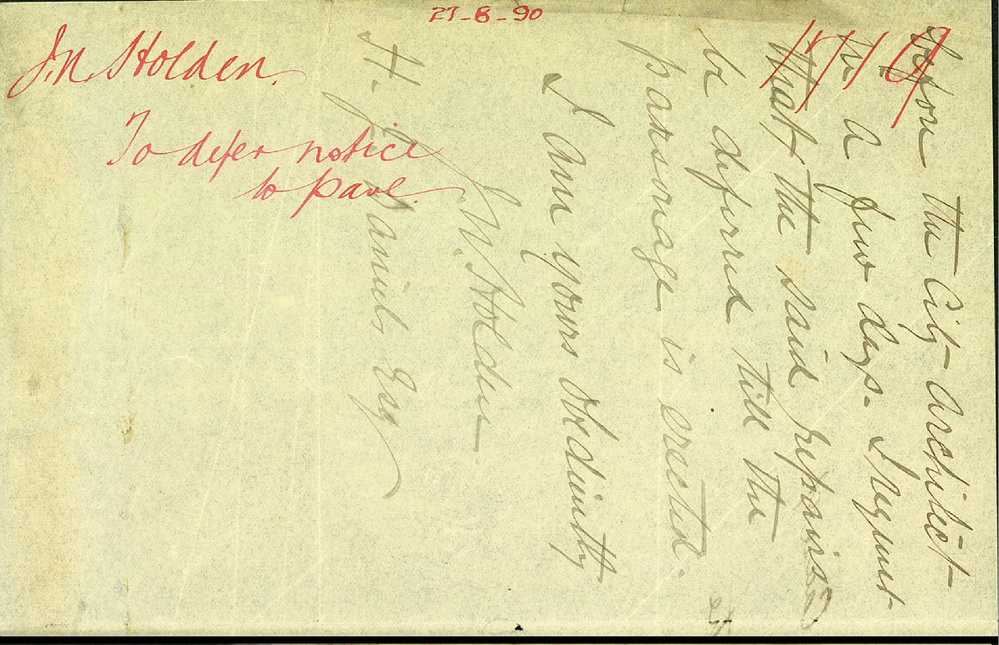 27-8-90
1719
J.W. Holden.
To defer notice
to pave.
before the City architect
in a few days. I request
that the said repairs
be deferred till the
parsonage is erected.
I am yours obediently
J.W. Holden
H. J. Daniels Esq